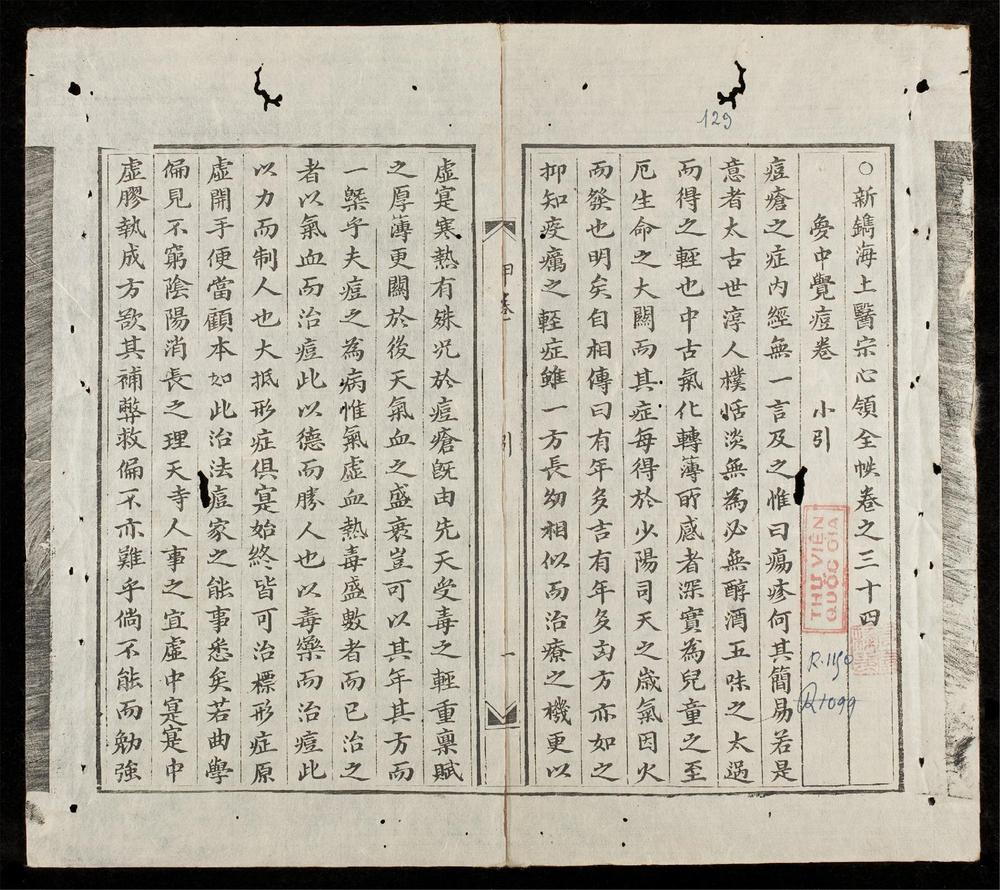 129
○新鐫海上醫宗心領全帙卷之三十四
夢中覺痘卷 小引
痘瘡之症內經無一言及之惟曰瘍疹何其簡易若是
意者太古世淳人樸恬淡無為必無醇酒五味之太過
而得之輕也中古氣化轉薄所感者深實為兒童之至
厄生命之大關而其症每得於少陽司天之歲氣因火
而發也明矣自相傳曰有年多吉有年多凶方亦如之
抑知疫癘之輕症雖一方長幼相似而治療之機更以
甲卷 引 一
虛寔寒熱有殊況於痘瘡既由先天受毒之輕重稟賦
之厚薄更關於後天氣血之盛衰豈可以其年其方而
一槩乎夫痘之為病惟氣虛血熱毒盛數者而已治之
者以氣血而治痘此以德而勝人也以毒藥而治痘此
以力而制人也大抵形症俱寔始終皆可治標形症原
虛開手便當顧本如此治法痘家之能事悉矣若曲學
偏見不窮陰陽消長之理天時人事之宜虛中寔寔中
虛膠執成方欲其補弊救偏不亦難乎倘不能而勉強
THƯ VIỆN
QUỐC GIA
R.1150
R1099